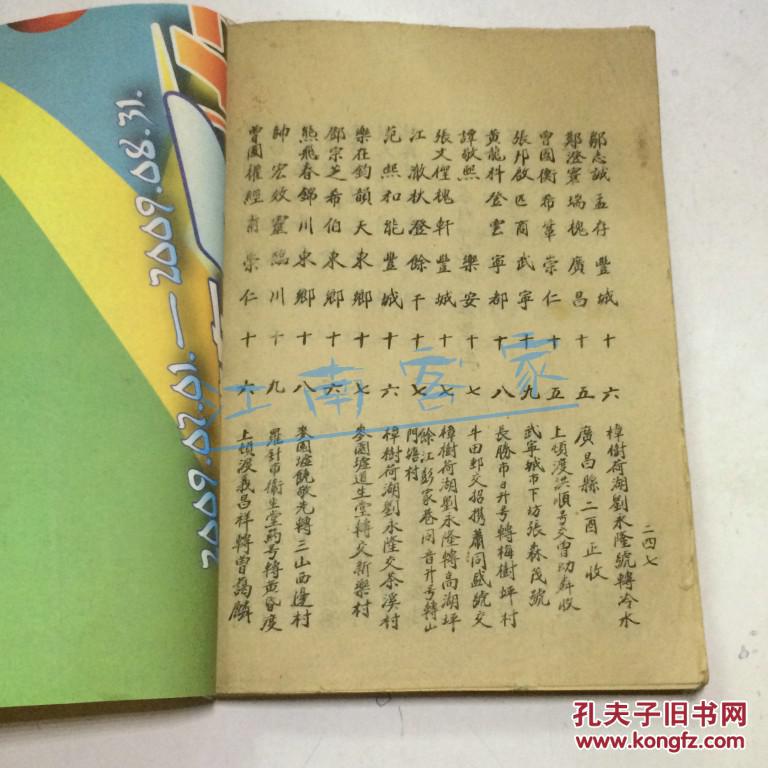 二四七
鄒志誠 孟存 豐城 十六 樟樹荷湖劉永隆號轉冷水
鄭澄寰 瑞槐 廣昌 十五 廣昌縣二酉正收
曾國衡 希莘 崇仁 十五 上頓渡洪順号交曾功弁收
張邦啟 匹商 武寧 十九 武寧城市下坊張森茂號
黃龍科 登雲 寧都 十八 長勝市日升号轉梅樹坪村
譚敬熙 樂安 十七 牛田郵交招携蕭同盛號交
張文俚 槐軒 豐城 十七 樟樹荷湖劉永隆轉高湖坪
江澈 狀澄 餘干 十七 餘江彭家巷同音升号轉山門塘村
范熙 和能 豐城 十六 樟樹荷湖劉永隆交茶溪村
樂在鈞 韻天 東鄉 十七 麥園墟道生堂轉交新樂村
鄧宗芝 希伯 東鄉 十六
熊飛春 錦川 東鄉 十八 麥園墟饒敬先轉三山西邊村
帥宏效 靈 臨川 十九 羅針市衛生堂药号轉黃昏度
曾國權 經甫 崇仁 十六 上頓渡義昌祥轉曾蔼麟
江南客家
2009.07.01.—2009.08.31.
孔夫子旧书网
www.kongfz.com